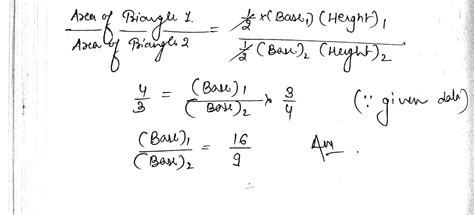 Area of Triangle 1 / Area of Triangle 2 = 1/2 × (Base)1 (Height)1 / 1/2 (Base)2 (Height)2
4/3 = (Base)1 / (Base)2 × 3/4 (∵ given data)
(Base)1 / (Base)2 = 16/9 Ans.